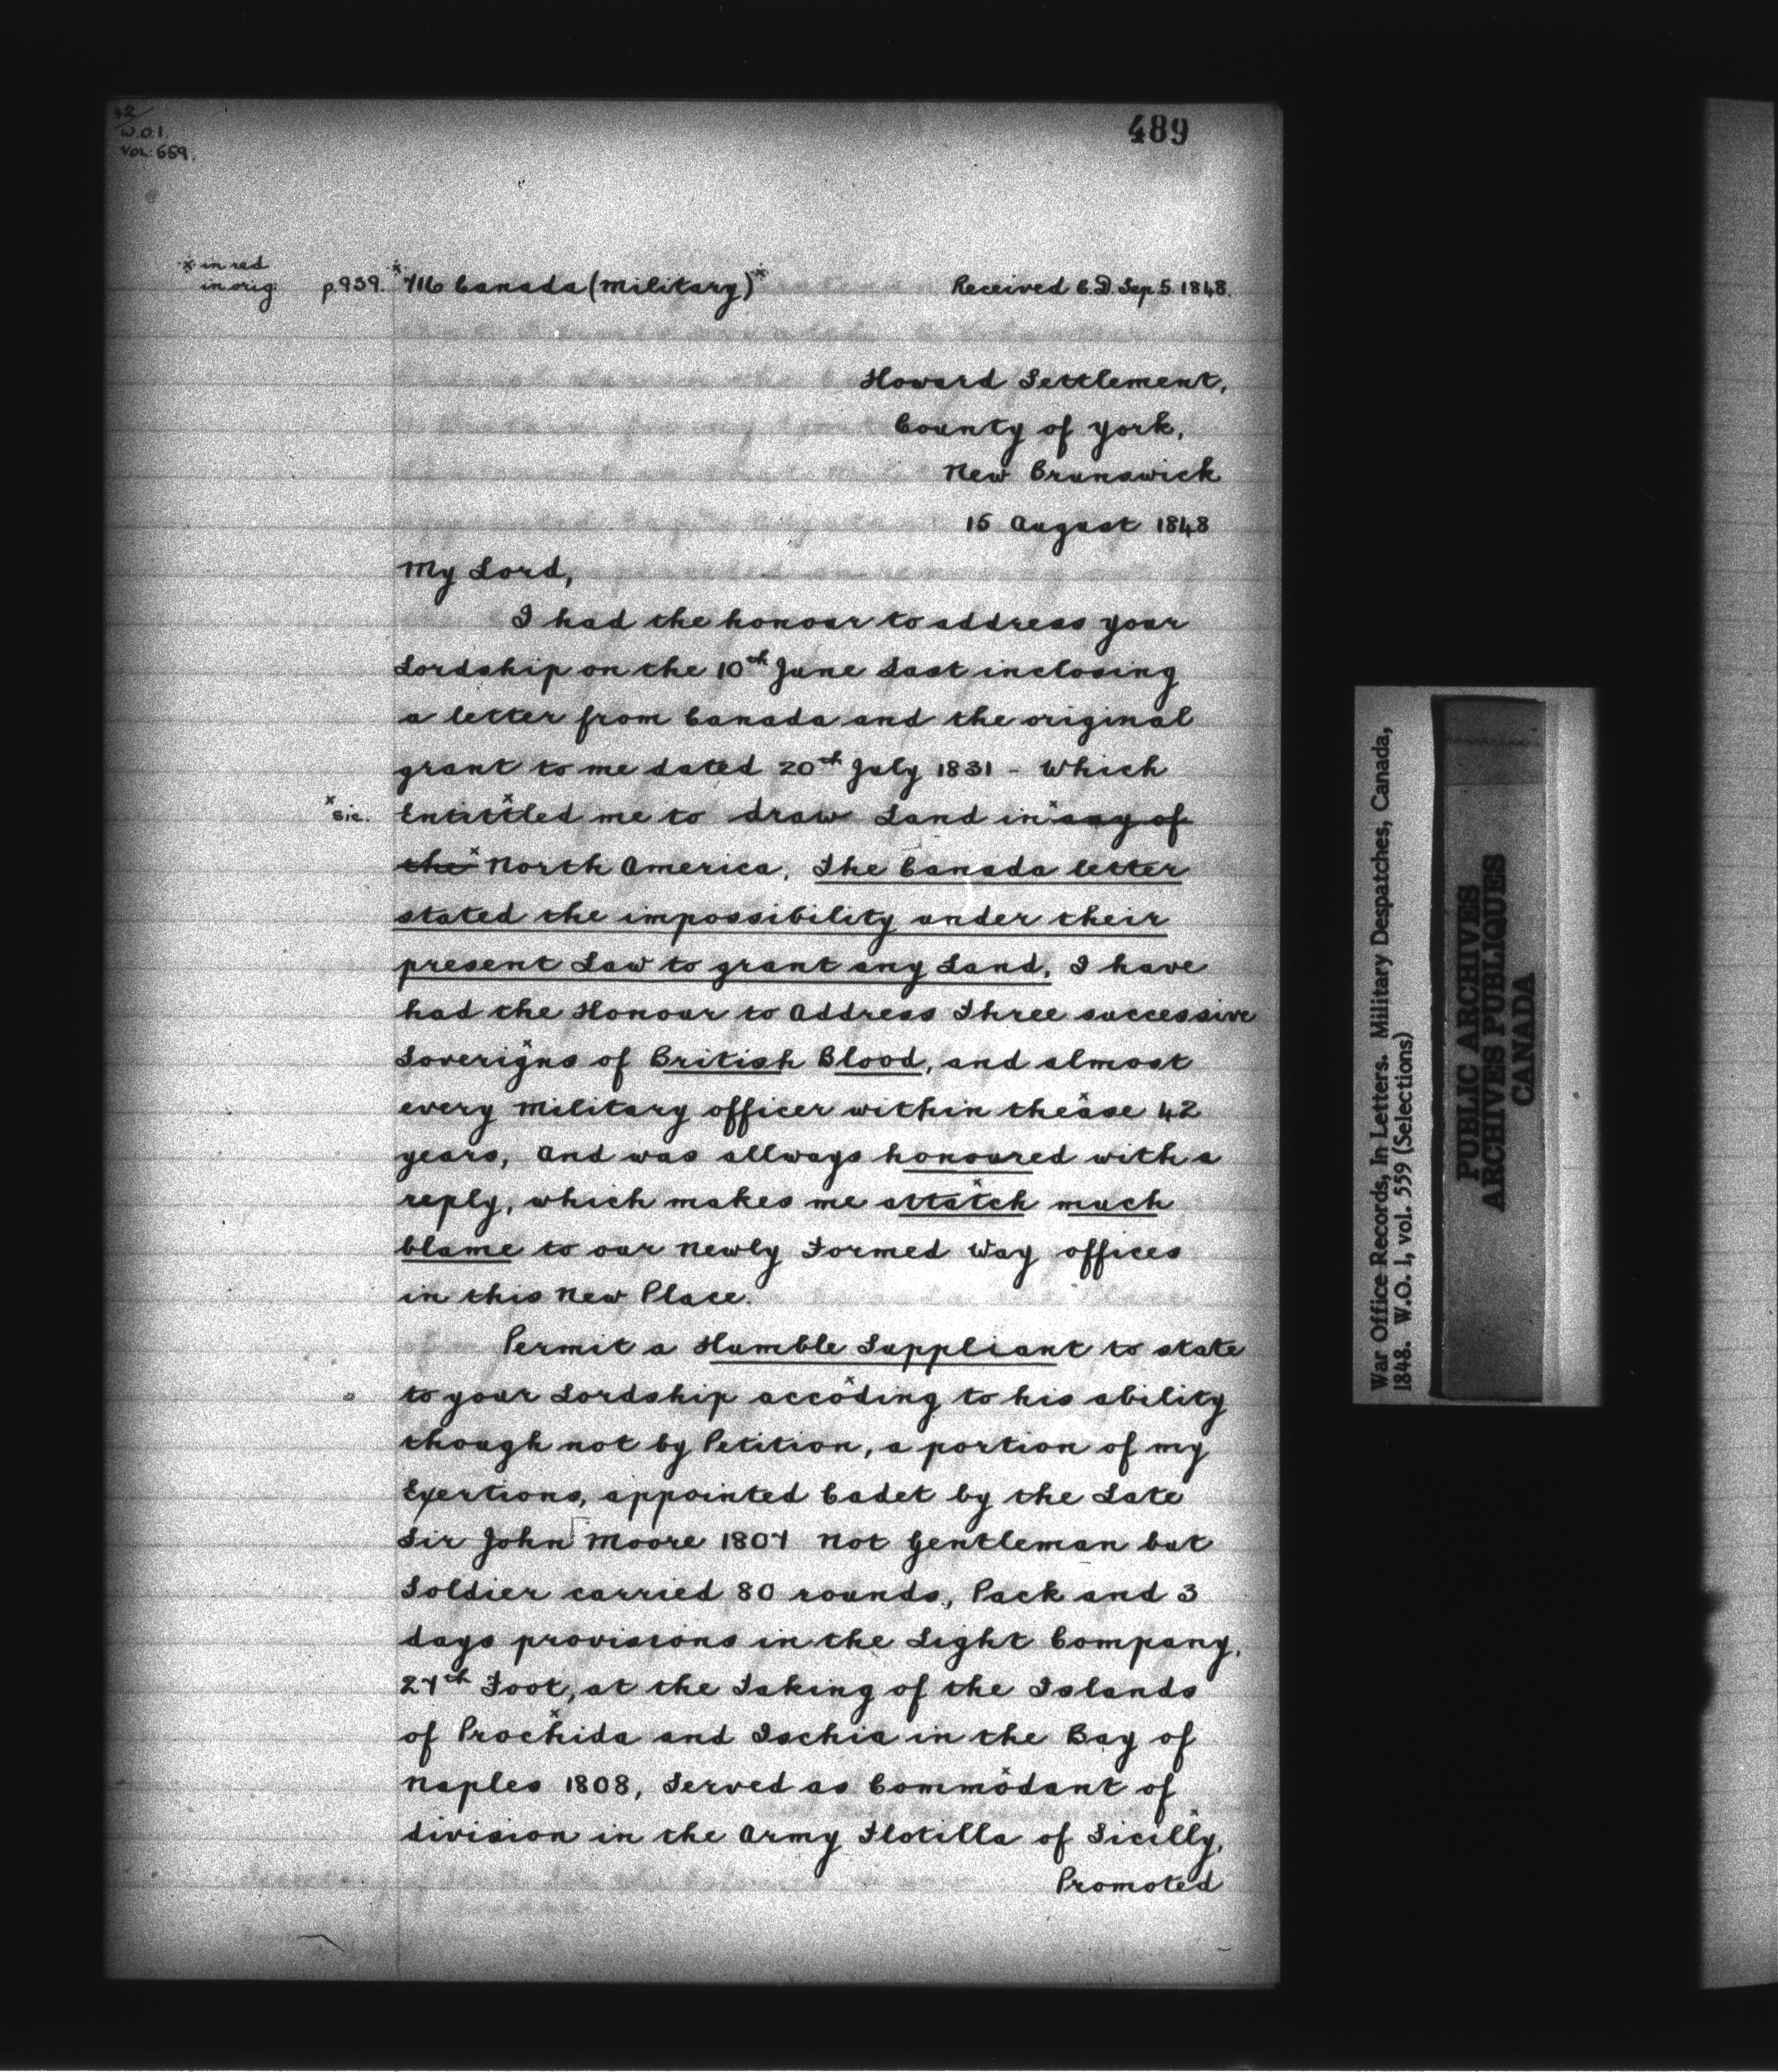 42/
W.O.1.
Vol. 559.
489
x in red
in orig.
p.939. x 716 Canada (Military) x Received C.D. Sep. 5. 1848.
Howard Settlement,
County of York,
New Brunswick
15 August 1848
My Lord,
I had the honour to address your
Lordship on the 10th June Last inclosing
a letter from Canada and the original
grant to me dated 20th July 1831 - Which
x sic. Entittled me to draw Land in any of
the North America. The Canada letter
stated the impossibility under their
present Law to grant any Land. I have
had the Honour to Address Three successive
Soverigns of British Blood, and almost
every Military officer within thease 42
years, And was allways honoured with a
reply, which makes me attatch much
blame to our Newly Formed Way offices
in this New Place.
Permit a Humble Suppliant to state
to your Lordship accoding to his ability
though not by Petition, a portion of my
Exertions, appointed Cadet by the Late
Sir John Moore 1807 Not Gentleman but
Soldier carried 80 rounds, Pack and 3
days provisions in the Light Company,
27th Foot, at the Taking of the Islands
of Prochida and Ischia in the Bay of
Naples 1808, Served as Commodant of
division in the Army Flotilla of Sicilly,
Promoted
War Office Records, In-Letters. Military Despatches, Canada,
1848. W.O. 1, vol. 559 (Selections)
PUBLIC ARCHIVES
ARCHIVES PUBLIQUES
CANADA